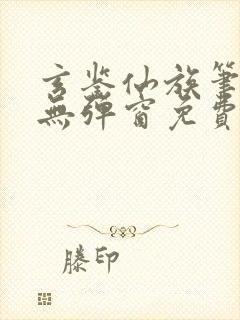 玄鉴仙族笔
無弹窗免費
滕印